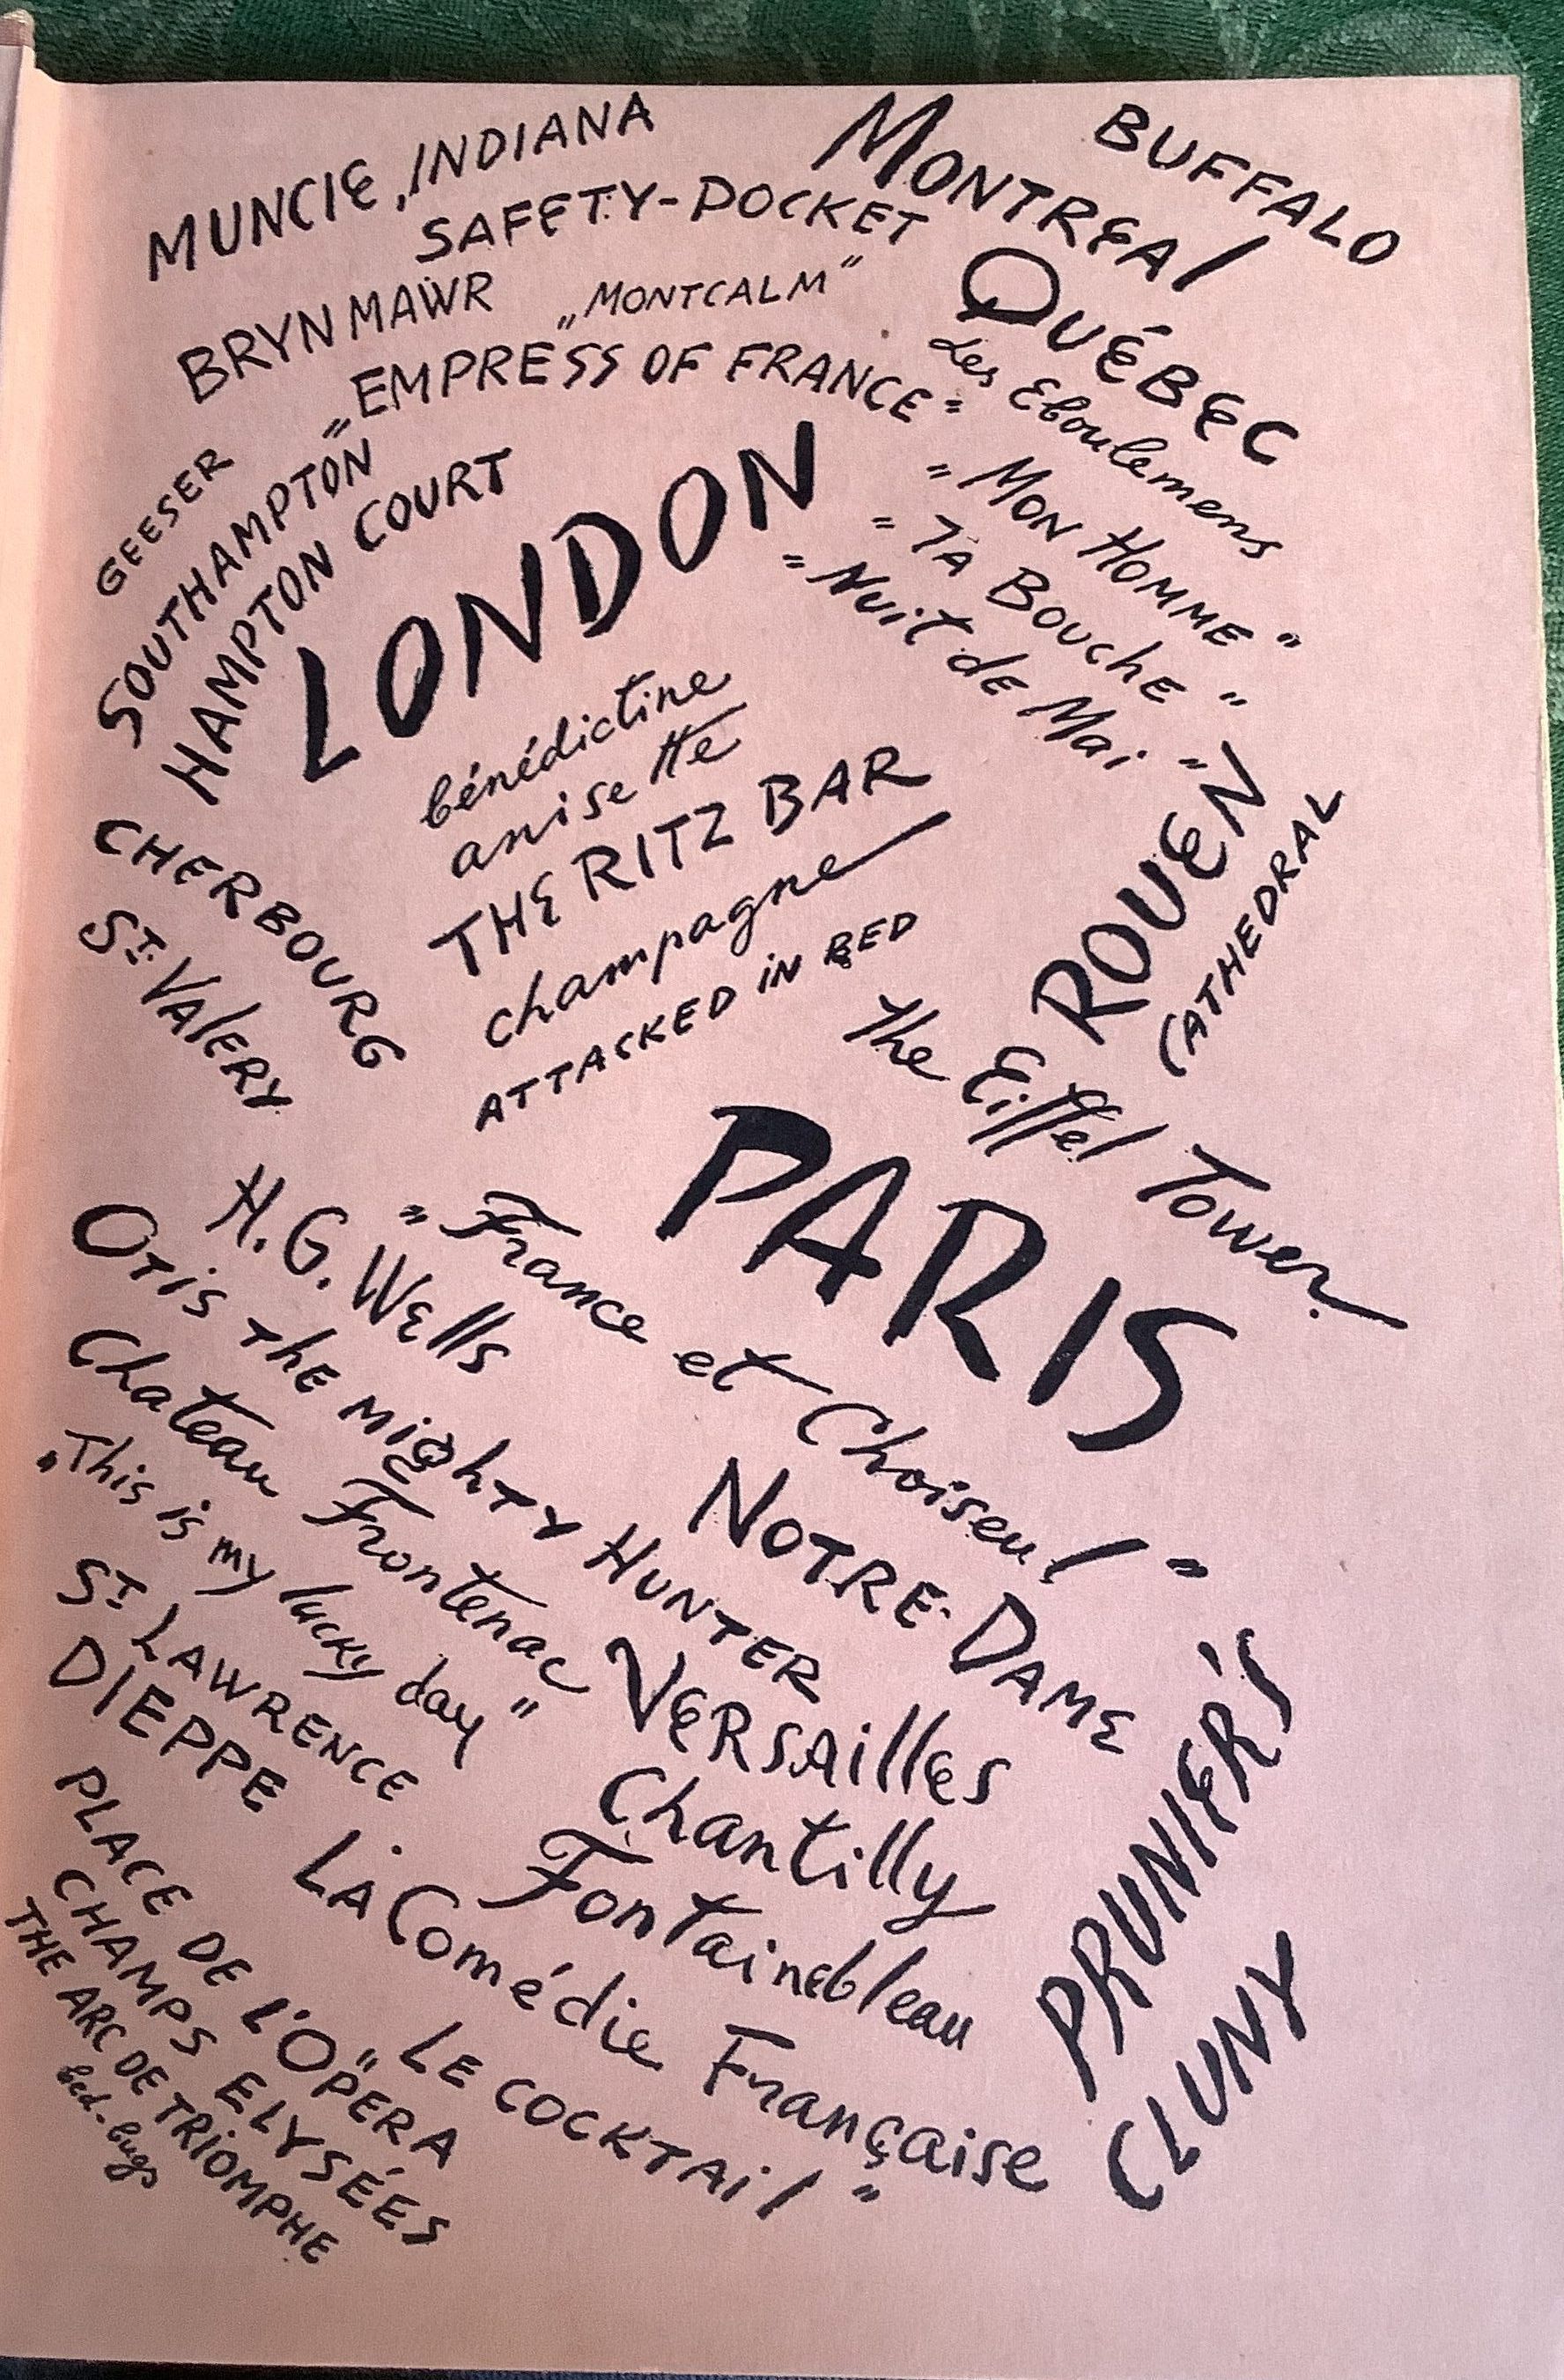 MUNCIE, INDIANA
SAFETY-POCKET
MONTREAL
BUFFALO
BRYN MAWR
„MONTCALM”
QUÉBEC
Les Eboulemens
„EMPRESS OF FRANCE”
GEESER
SOUTHAMPTON
HAMPTON COURT
LONDON
„MON HOMME”
„TA BOUCHE”
„NUIT DE MAI”
bénédictine
anisette
THE RITZ BAR
champagne
ATTACKED IN BED
ROUEN
CATHEDRAL
CHERBOURG
ST. VALERY
The Eiffel Tower
PARIS
H. G. WELLS
„France et Choiseul”
OTIS THE MIGHTY HUNTER
Chateau Frontenac
„This is my lucky day”
NOTRE-DAME
ST LAWRENCE
DIEPPE
VERSAILLES
Chantilly
Fontainebleau
PRUNIER'S
CLUNY
LA Comédie Française
„LE COCKTAIL”
PLACE DE L'OPERA
CHAMPS ELYSÉES
THE ARC DE TRIOMPHE
bed-bugs